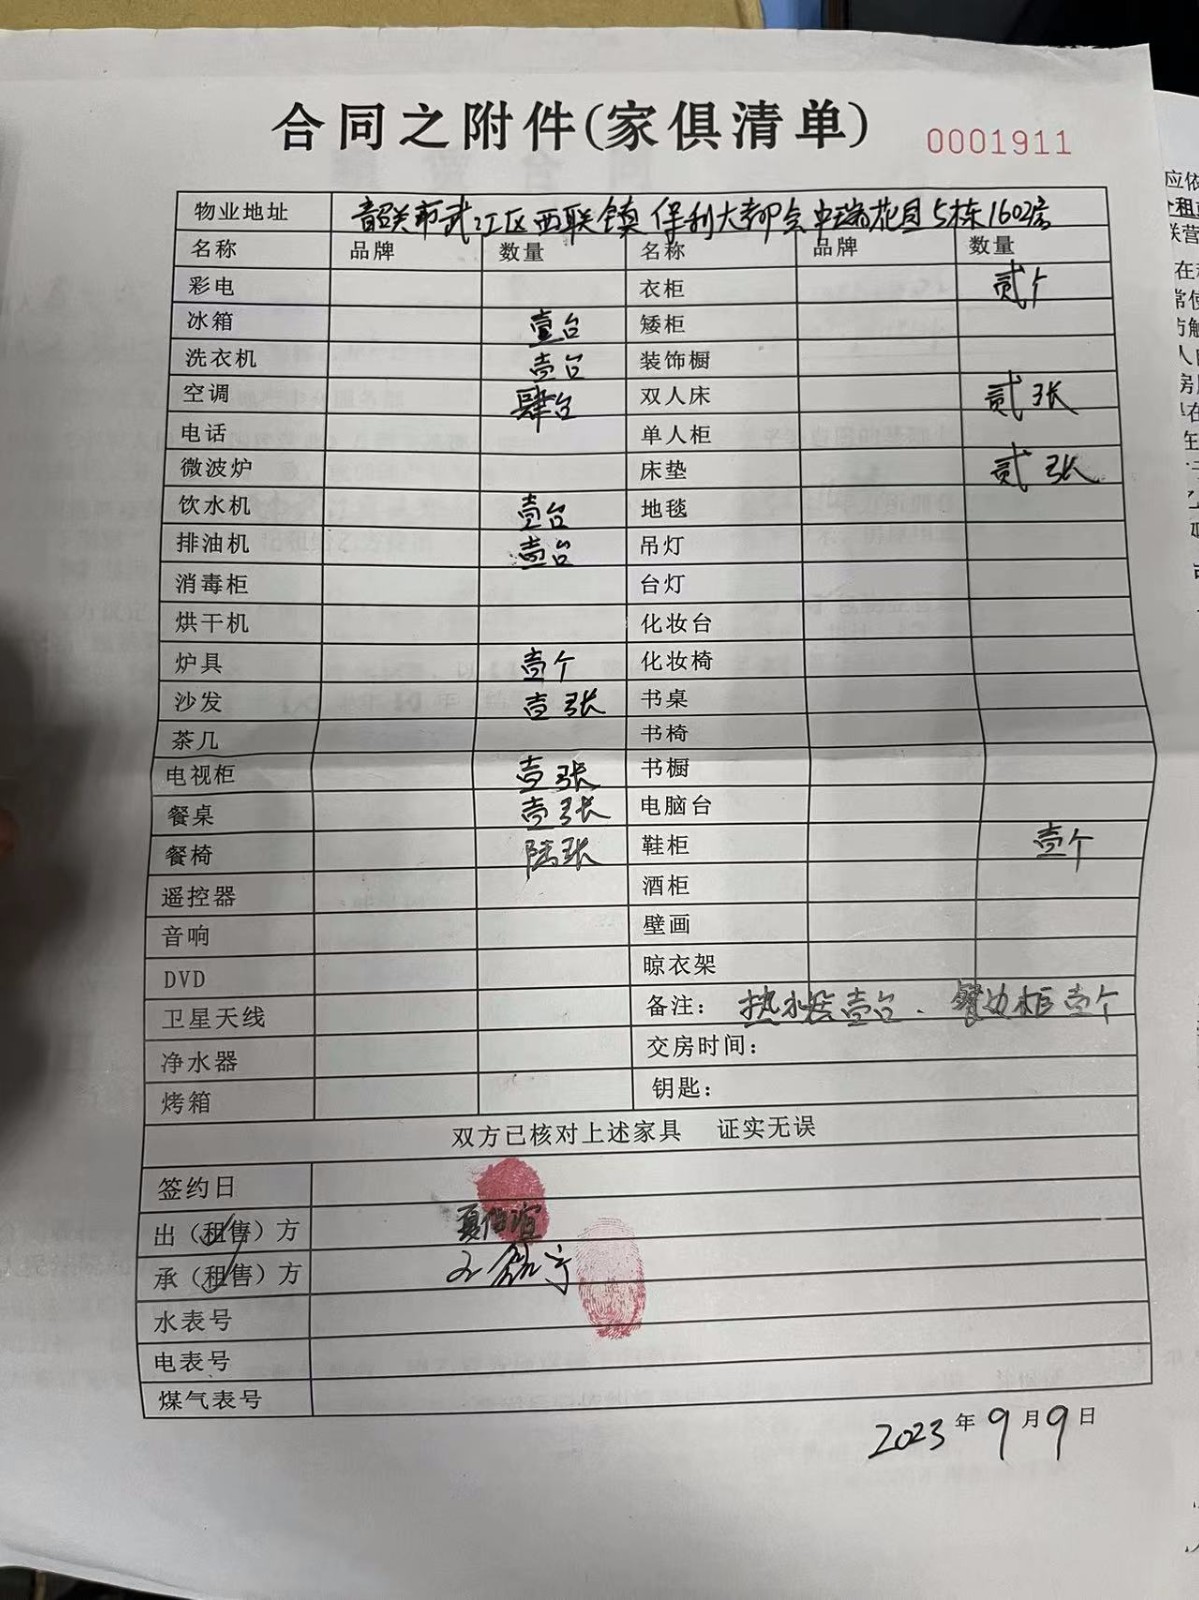 合同之附件(家俱清单)
0001911
物业地址 韶关市武江区西联镇保利大都会中瑞花园5栋1602房
名称 品牌 数量 名称 品牌 数量
彩电 衣柜 贰个
冰箱 壹台 矮柜
洗衣机 壹台 装饰橱
空调 肆台 双人床 贰张
电话 单人柜
微波炉 床垫 贰张
饮水机 壹台 地毯
排油机 壹台 吊灯
消毒柜 台灯
烘干机 化妆台
炉具 壹个 化妆椅
沙发 壹张 书桌
茶几 书椅
电视柜 壹张 书橱
餐桌 壹张 电脑台
餐椅 陆张 鞋柜 壹个
遥控器 酒柜
音响 壁画
DVD 晾衣架
卫星天线 备注: 热水器壹台、餐边柜壹个
净水器 交房时间:
烤箱 钥匙:
双方已核对上述家具 证实无误
签约日
出（租售）方
承（租售）方
水表号
电表号
煤气表号
2023年9月9日